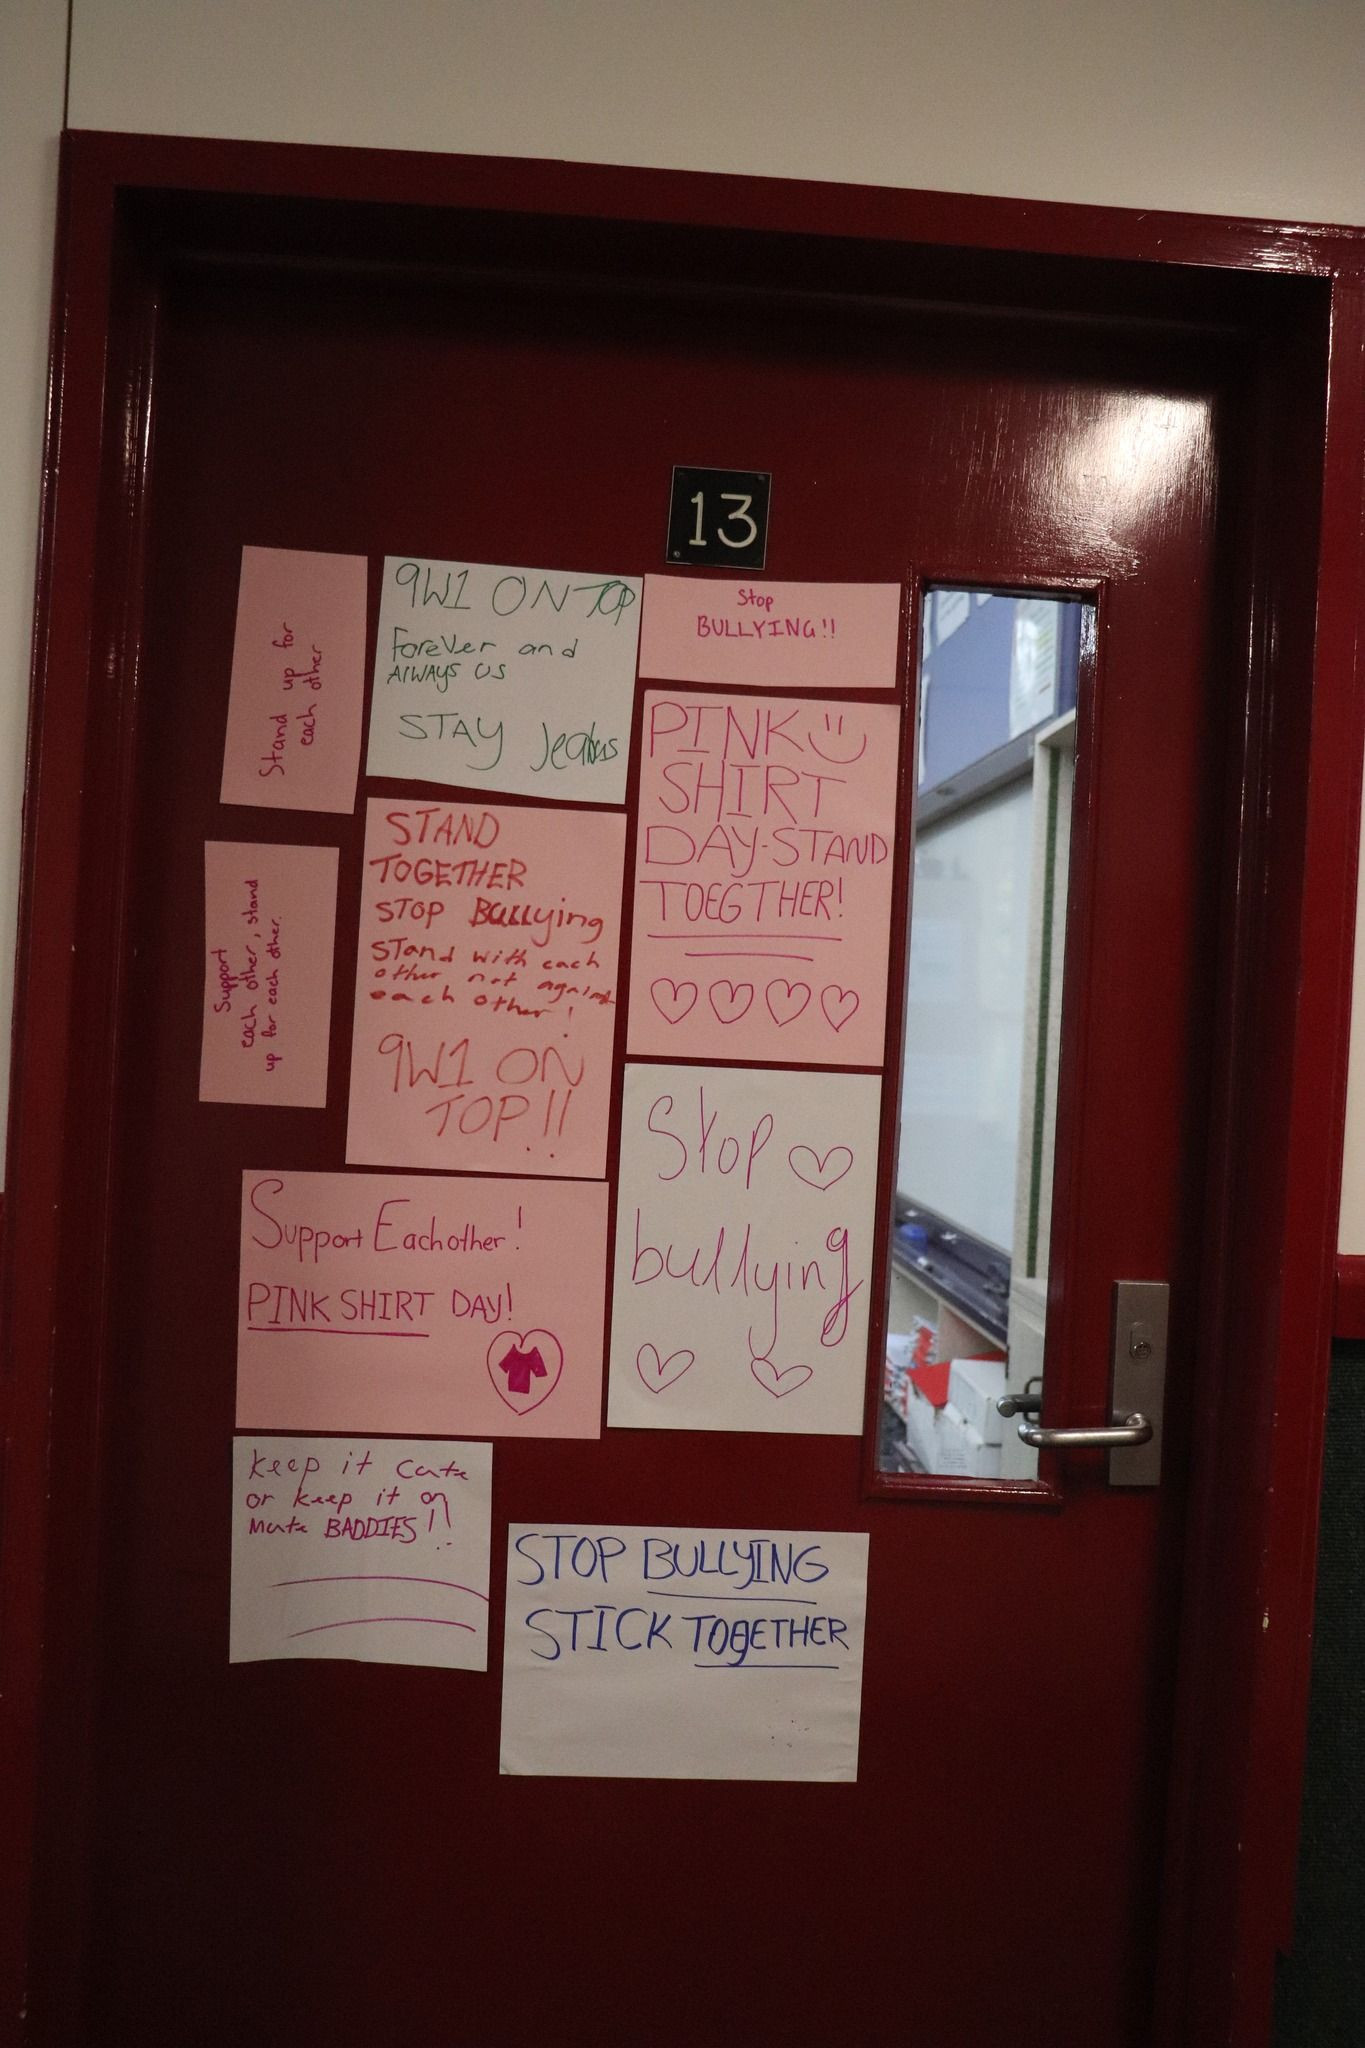 13
Stand up for
each other
9W1 ON TOP
Forever and
AlWAYS US
STAY Jealous
Stop
BULLYING!!
PINK
SHIRT
DAY-STAND
TOEGTHER!
Support
each other, stand
up for each other.
STAND
TOGETHER
STOP BULLying
STand with each
other not against
each other!
9W1 ON
TOP!!
Stop
bullying
Support Eachother!
PINK SHIRT DAY!
Keep it cute
or keep it on
Mute BADDIES!!
STOP BULLYING
STICK TOGETHER